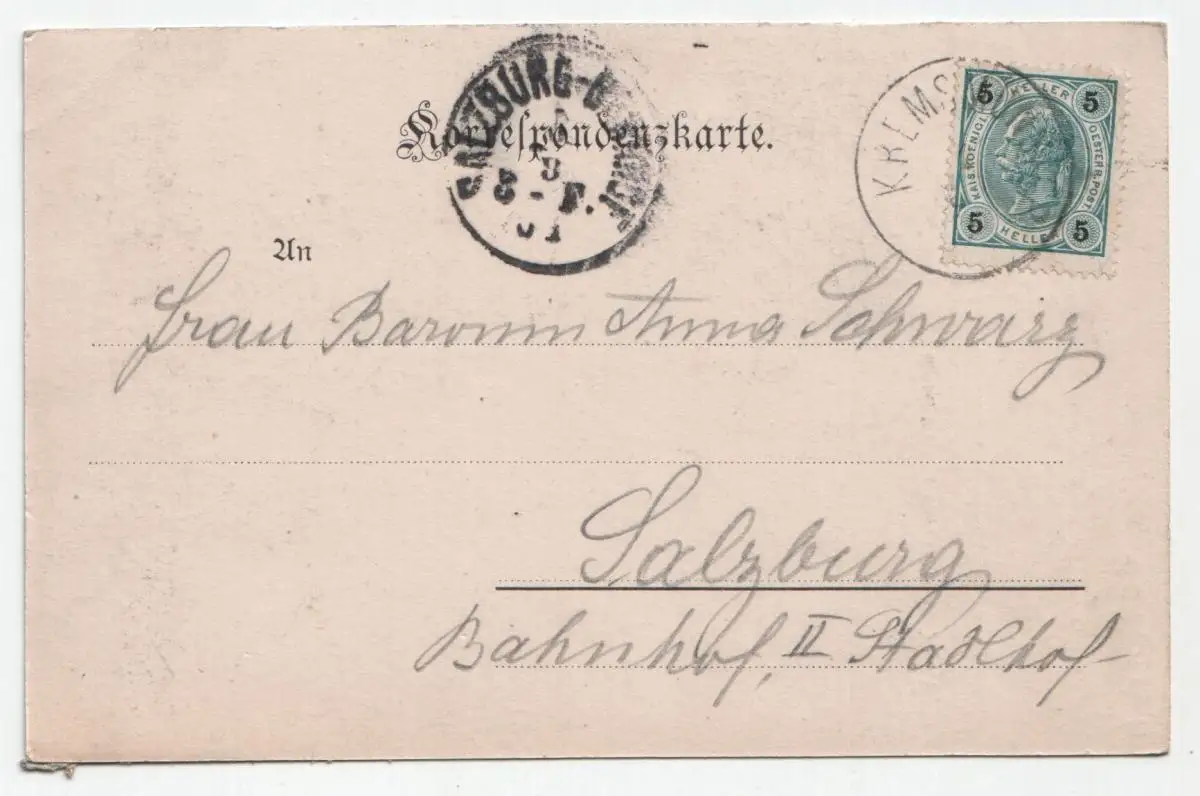 Korrespondenzkarte.
SALZBURG-B
9
8-F.
01
KREMS
5 HELLER 5
KAIS. KOENIGL.
OESTERR. POST.
5 HELLER 5
An
Frau Baronin Anna Schwarz
Salzburg
Bahnhof, II Stadlhof